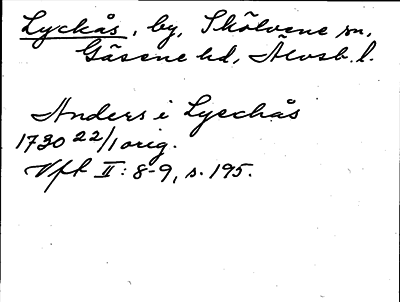 Lyckås, by, Skölvene sn,
Gäsene hd, Älvsb. l.
Anders i Lyschås
1730 22/1 orig.
Vft II: 8-9, s. 195.